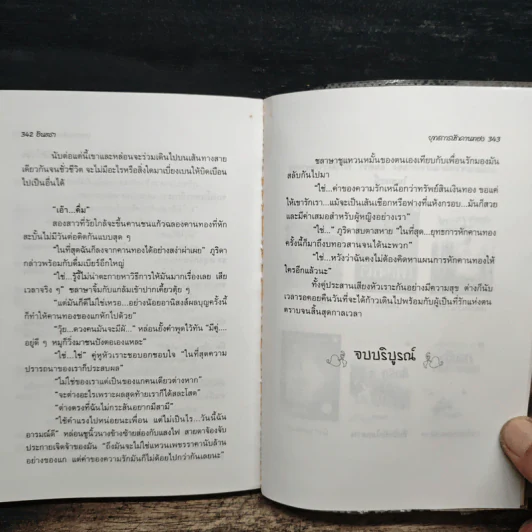 342 อินตรา
นับต่อแต่นี้เขาและหล่อนจะร่วมเดินไปบนเส้นทางสาย
เดียวกันจนชั่วชีวิต จะไม่มีอะไรหรือสิ่งใดมาเบี่ยงเบนให้บิดเบือน
ไปเป็นอื่นได้
“เอ้า...ดื่ม”
สองสาวที่วัยใกล้จะขึ้นคานชนแก้วฉลองคานทองที่หัก
สะบั้นไม่มีวันต่อติดกันแบบสุด ๆ
“ในที่สุดฉันก็ลงจากคานทองได้อย่างสง่าผ่าเผย” ภุริตา
กล่าวพร้อมกับดื่มเบียร์อีกอึกใหญ่
“ใช่...รู้งี้ไม่น่าตะกายหาวิธีการให้มันมากเรื่องเลย เสีย
เวลาจริง ๆ” ชลาษาจิ้มกับแกล้มเข้าปากเคี้ยวตุ้ย ๆ
“แต่มันก็ดีไม่ใช่เหรอ...อย่างน้อยอานิสงส์ผลบุญครั้งนี้
ก็ทำให้คานทองของแกหักไปด้วย”
“วุ้ย...ดวงคนมันจะมีผั...” หล่อนยั้งคำพูดไว้ทัน “มีคู่...
อยู่ดี ๆ หมูก็วิ่งมาชนปังตอเองแหละ”
“ใช่...ใช่” คู่หูหัวเราะชอบอกชอบใจ “ในที่สุดความ
ปรารถนาของเราก็ประสบผล”
“ไม่ใช่ของเราแต่เป็นของแกคนเดียวต่างหาก”
“จะต่างอะไรเพราะผลสุดท้ายเราก็ได้สละโสด”
“ต่างตรงที่ฉันไม่กระสันอยากมีสามี”
“ใช้คำแรงไปหน่อยนะเพื่อน แต่ไม่เป็นไร...วันนี้ฉัน
อารมณ์ดี” หล่อนชูนิ้วนางข้างซ้ายส่องกับแสงไฟ สายตาจ้องจับ
ประกายเจิดจ้าของมัน “ถึงมันจะไม่ใช่แหวนเพชรราคานับล้าน
อย่างของแก แต่ค่าของความรักมันก็ไม่ด้อยไปกว่ากันเลยนะ”
ยุทธการหักคานทอง 343
ชลาษาชูแหวนหมั้นของตนเองเทียบกับเพื่อนรักมองมัน
สลับกันไปมา
“ใช่...ค่าของความรักเหนือกว่าทรัพย์สินเงินทอง ขอแค่
ให้เขารักเรา...แม้จะเป็นเส้นเชือกหรือฟางที่แห้งกรอบ...มันก็สวย
และมีค่าเสมอสำหรับผู้หญิงอย่างเรา”
“ใช่...” ภุริตาสบตาสหาย “ในที่สุด...ยุทธการหักคานทอง
ครั้งนี้ก็มาถึงบทอวสานจนได้นะพวก”
“ใช่...หวังว่าฉันคงไม่ต้องคิดหาแผนการหักคานทองให้
ใครอีกแล้วนะ”
ทั้งคู่ประสานเสียงหัวเราะกันอย่างมีความสุข ต่างก็นับ
เวลารอคอยคืนวันที่จะได้ก้าวเดินไปพร้อมกับผู้เป็นที่รักแห่งตน
ตราบจนสิ้นสุดกาลเวลา
จบบริบูรณ์